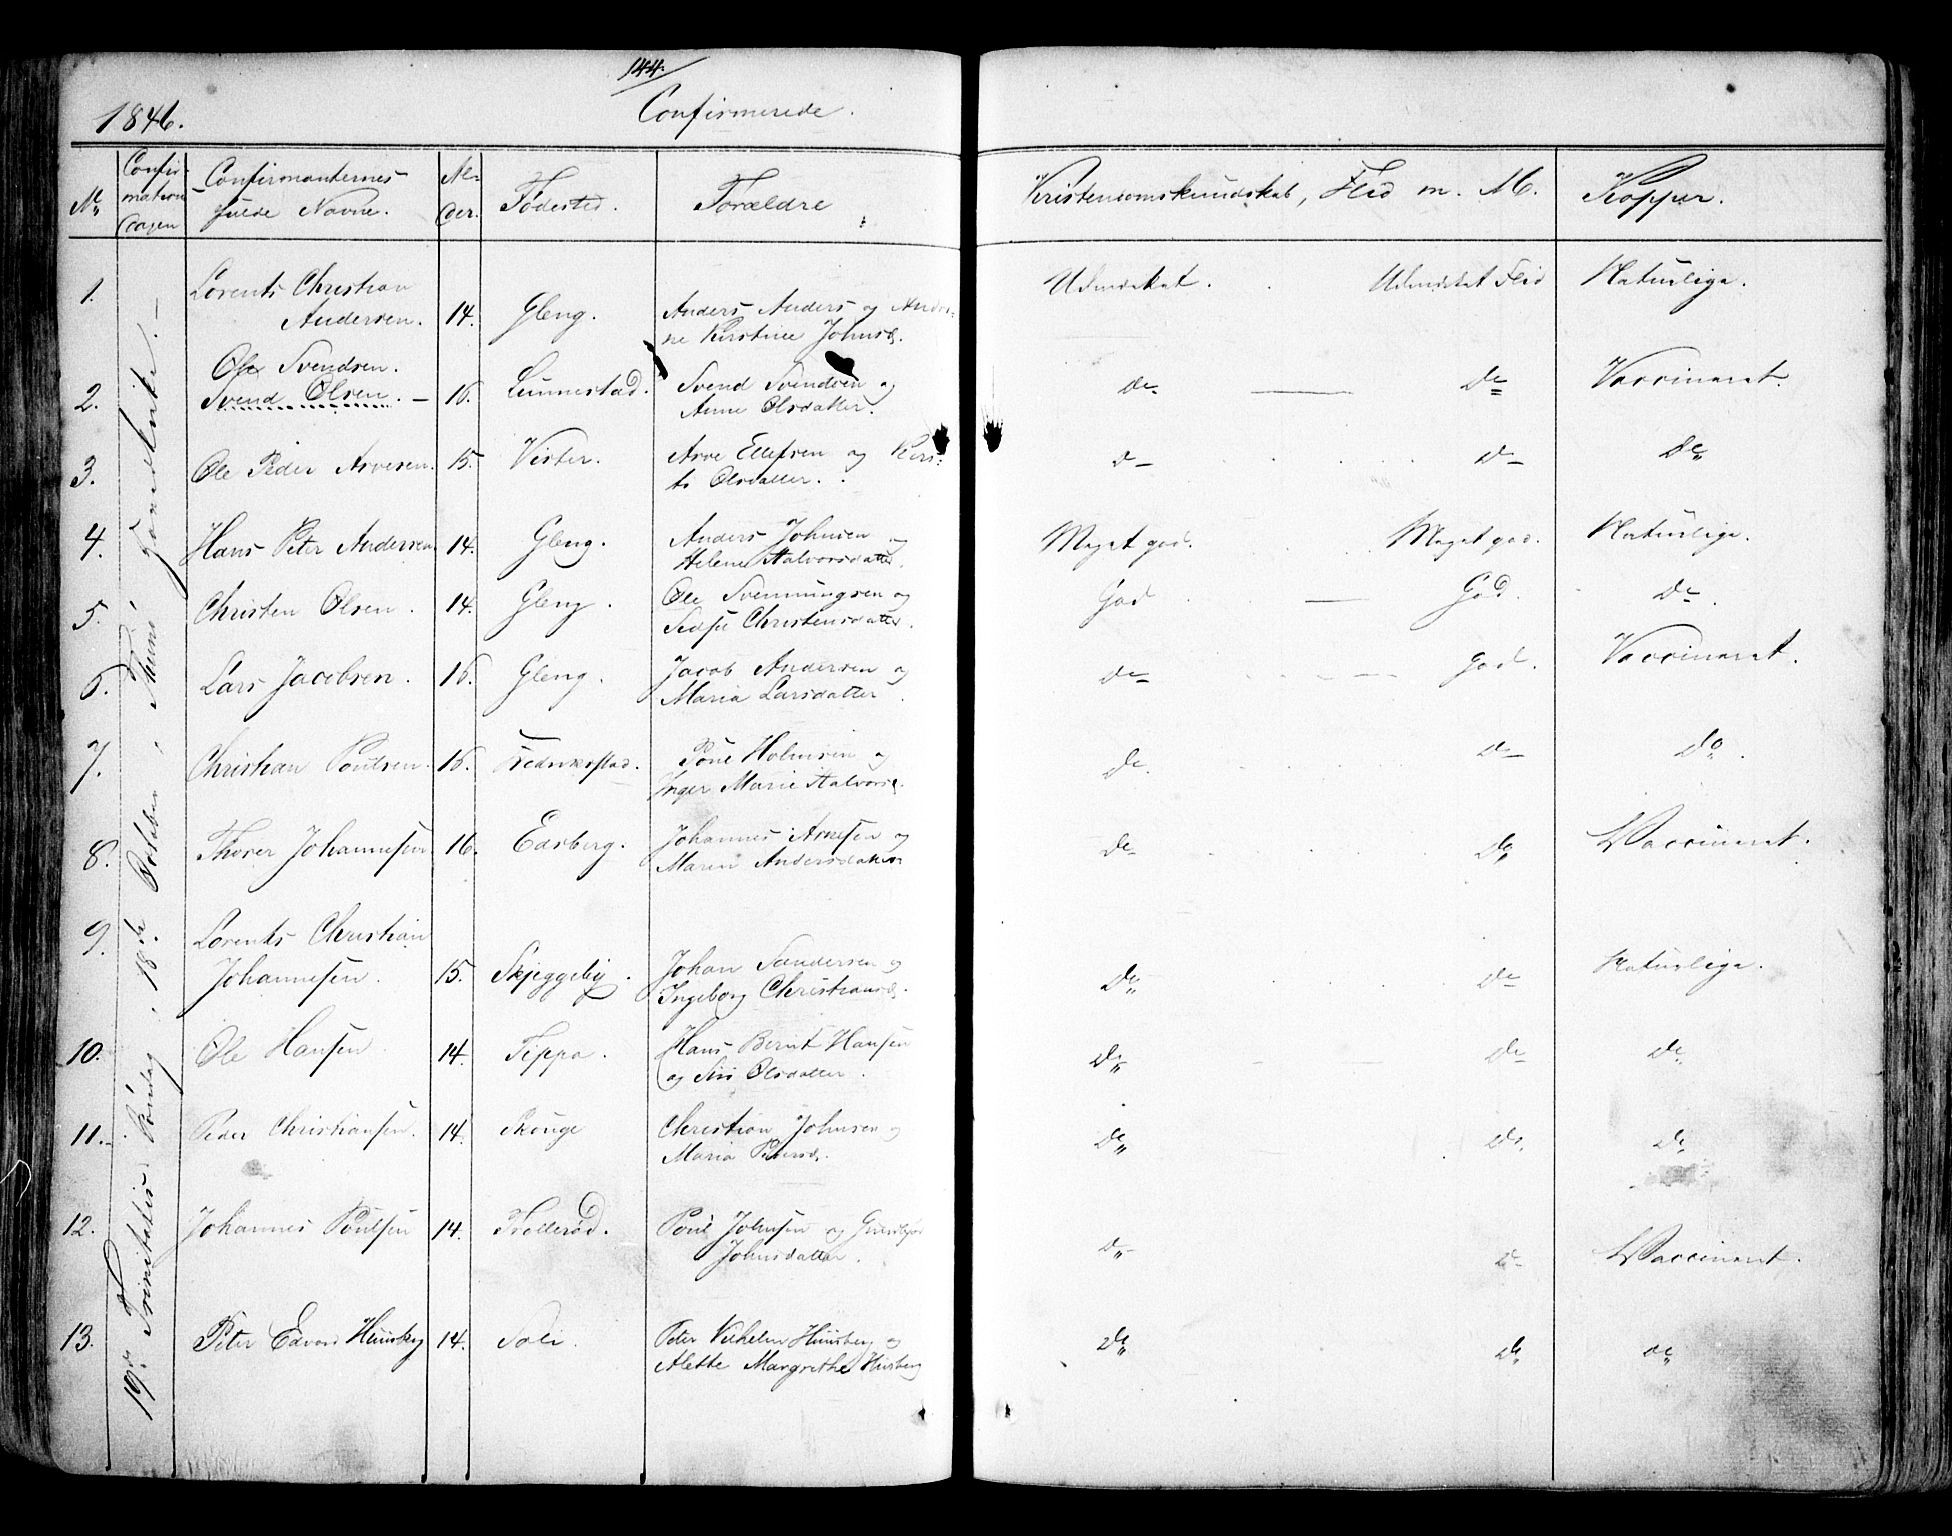 144.
1846.
Confirmerede.
No
Confir-
mations
dagen
Confirmanternes
fulde Navne.
Al-
der.
Fødested.
Forældre
Kristendomskundskab, Flid m. M.
Kopper.
19de Trinitatis Søndag, 18de October, Tuunø
1.
Lorents Christian
Andersen.
14.
Gleng.
Anders Anders og Andri-
ne Kirstine Johnsd.
Udmærket.
Udmærket Flid
Naturlige.
2.
Ole Svendsen.
Svend Olsen. —
16.
Lunnestad.
Svend Svendsen og
Anne Olsdatter.
do
do
Vaccineret.
3.
Ole Peder Arvesen.
15.
Vister.
Arve Ellefsen og Kirs-
ti Olsdatter.
do
do
do
4.
Hans Peter Andersen
14.
Gleng.
Anders Johnsen og
Helene Halvorsdatter.
Meget god.
Meget god.
Naturlige.
5.
Christen Olsen.
14.
Gleng.
Ole Svenningsen og
Sidse Christensdatter.
God
God.
do.
6.
Lars Jacobsen.
16.
Gleng.
Jacob Andersen og
Maria Larsdatter.
do
God.
Vaccineret.
7.
Christian Poulsen.
16.
Fredrikstad.
Poul Holmsen og
Inger Marie Halvorsd.
do.
do
do.
8.
Thorer Johannesen
16.
Edsberg.
Johannes Arnesen og
Maren Andersdatter
do
do
Vaccineret.
9.
Lorents Christian
Johannesen.
15.
Skjeggeby.
Johan Sandersen og
Ingeborg Christiansd.
do
do
Naturlige.
10.
Ole Hansen.
14.
Tippa.
Hans Bernt Hansen
og Siri Olsdatter.
do
do
do.
11.
Peder Christiansen.
14.
Skouge
Christian Johnsen og
Maria Pedersd.
do
do.
do.
12.
Johannes Poulsen
14.
Trollerød.
Poul Johnsen og Gunbjør
Johnsdatter.
do
do
Vaccineret.
13.
Peter Edvard Huusberg
14.
Soli
Peter Vilhelm Huusberg og
Alette Margrethe Husberg
do
do
do